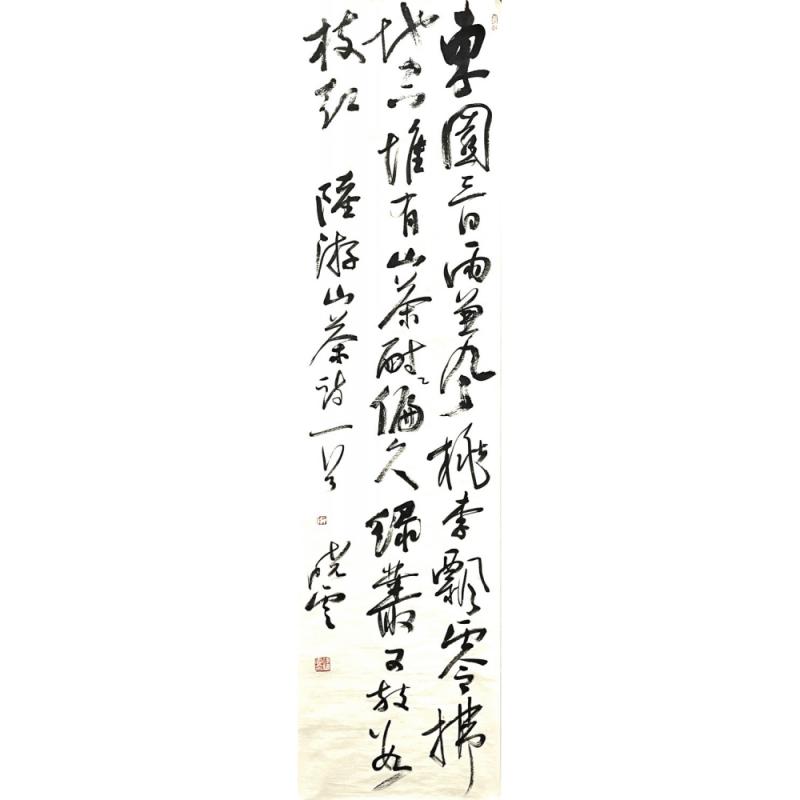 東園三日雨兼風桃李飄零掃
地空惟有山茶耐偏久緑叢又放数
枝紅 陸游山茶诗一首 晓雲